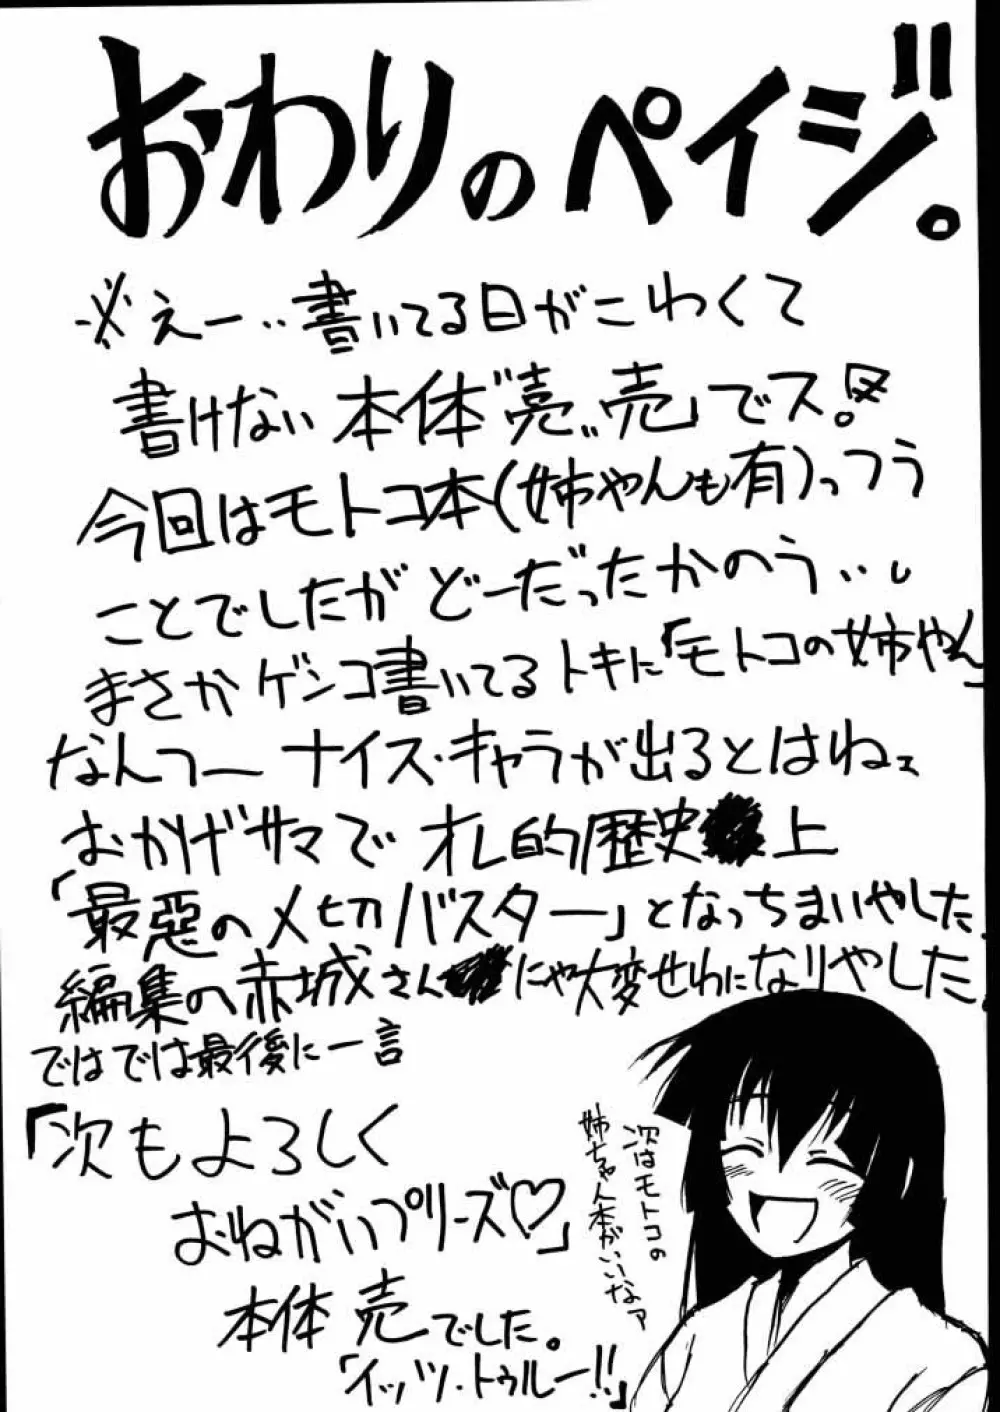 おわりのペイジ。
※えー‥書いてる日がこわくて
書けない本体〝売〟売」でス。
今回はモトコ本(姉やんも有)っつう
ことでしたがどーだったかのう…
まさかゲンコ書いてるトキに「モトコの姉やん」
なんつーナイス・キャラが出るとはねェ
おかげサマでオレ的歴史上
「最悪の〆切バスター」となっちまいやした。
編集の赤城さんにゃ大変せわになりやした。
ではでは最後に一言
「次もよろしく
おねがいプリーズ♡」
本体売でした。
「イッツ・トゥルー!!」
次はモトコの
姉ちゃん本がいいなァ